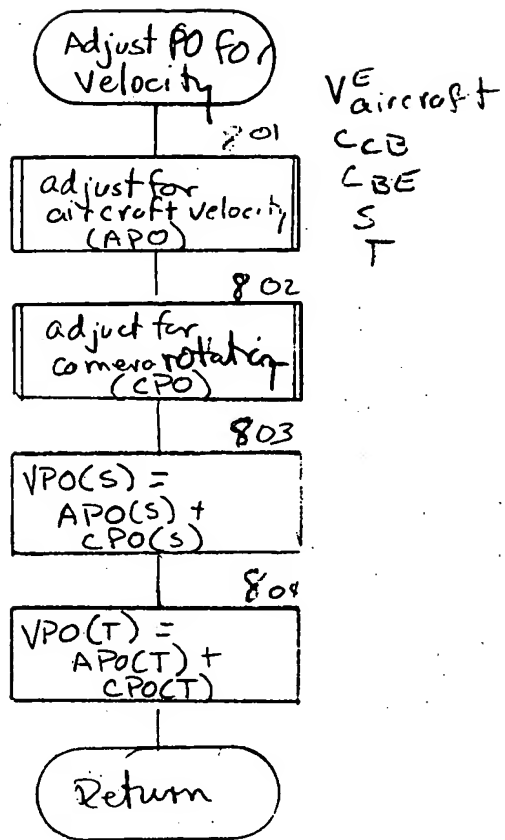 Adjust PO for
velocity
V^E aircraft
C CB
C BE
S
T
801
adjust for
aircraft velocity
(APO)
802
adjust for
camera rotation
(CPO)
803
VPO(S) =
APO(S) +
CPO(S)
804
VPO(T) =
APO(T) +
CPO(T)
Return